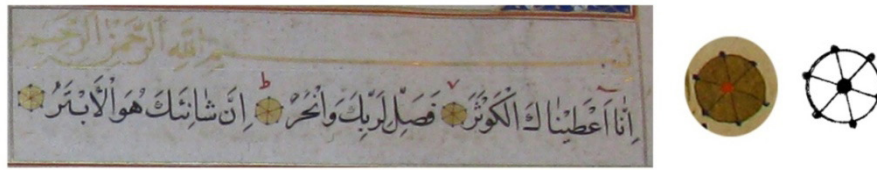 بسم الله الرحمن الرحيم
اِنَّا اَعْطَيْنَاكَ الْكَوْثَرَ فَصَلِّ لِرَبِّكَ وَانْحَرْ ط اِنَّ شَانِئَكَ هُوَ الْاَبْتَرُ